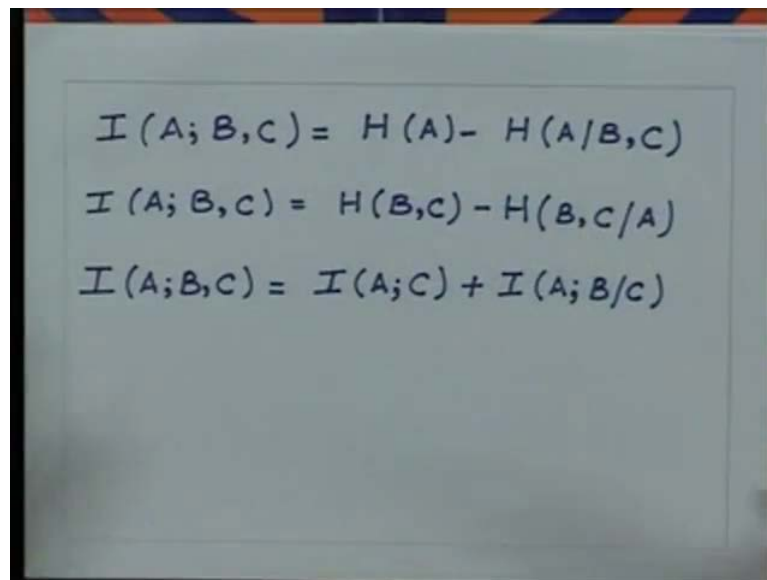 I (A; B, C) = H (A) - H (A/B, C)
I (A; B, C) = H (B,C) - H (B, C/A)
I (A; B, C) = I (A; C) + I (A; B/C)